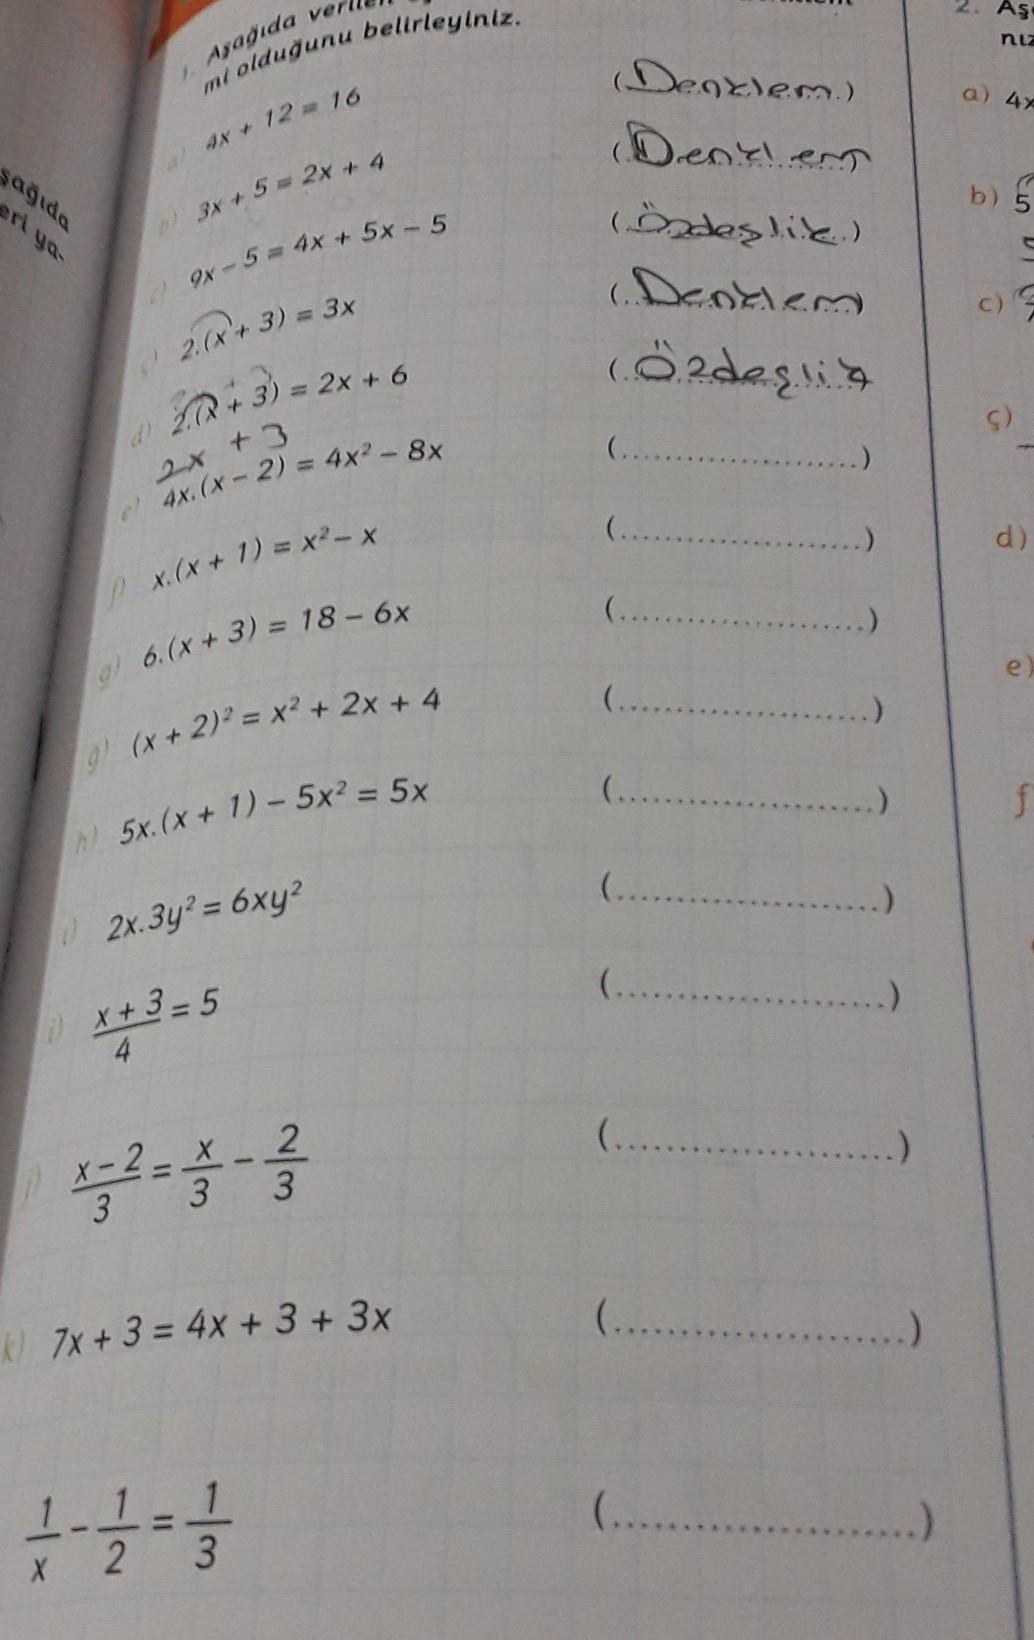 1. Aşağıda
mi olduğunu belirleyiniz.
a) 4x + 12 = 16 (Denklem)
b) 3x + 5 = 2x + 4 (Denklem
c) 9x - 5 = 4x + 5x - 5 (Özdeşlik)
ç) 2.(x + 3) = 3x (Denklem
d) 2.(x + 3) = 2x + 6 (Özdeşlik
2x + 3
e) 4x.(x - 2) = 4x² - 8x (....................)
f) x.(x + 1) = x² - x (....................)
g) 6.(x + 3) = 18 - 6x (....................)
ğ) (x + 2)² = x² + 2x + 4 (....................)
h) 5x.(x + 1) - 5x² = 5x (....................)
ı) 2x.3y² = 6xy² (....................)
i) x + 3 / 4 = 5 (....................)
j) x - 2 / 3 = x/3 - 2/3 (....................)
k) 7x + 3 = 4x + 3 + 3x (....................)
1/x - 1/2 = 1/3 (....................)
şağıda
eri ya-
2. Aş
nız
a) 4x
b) 5
c)
ç)
d)
e)
f